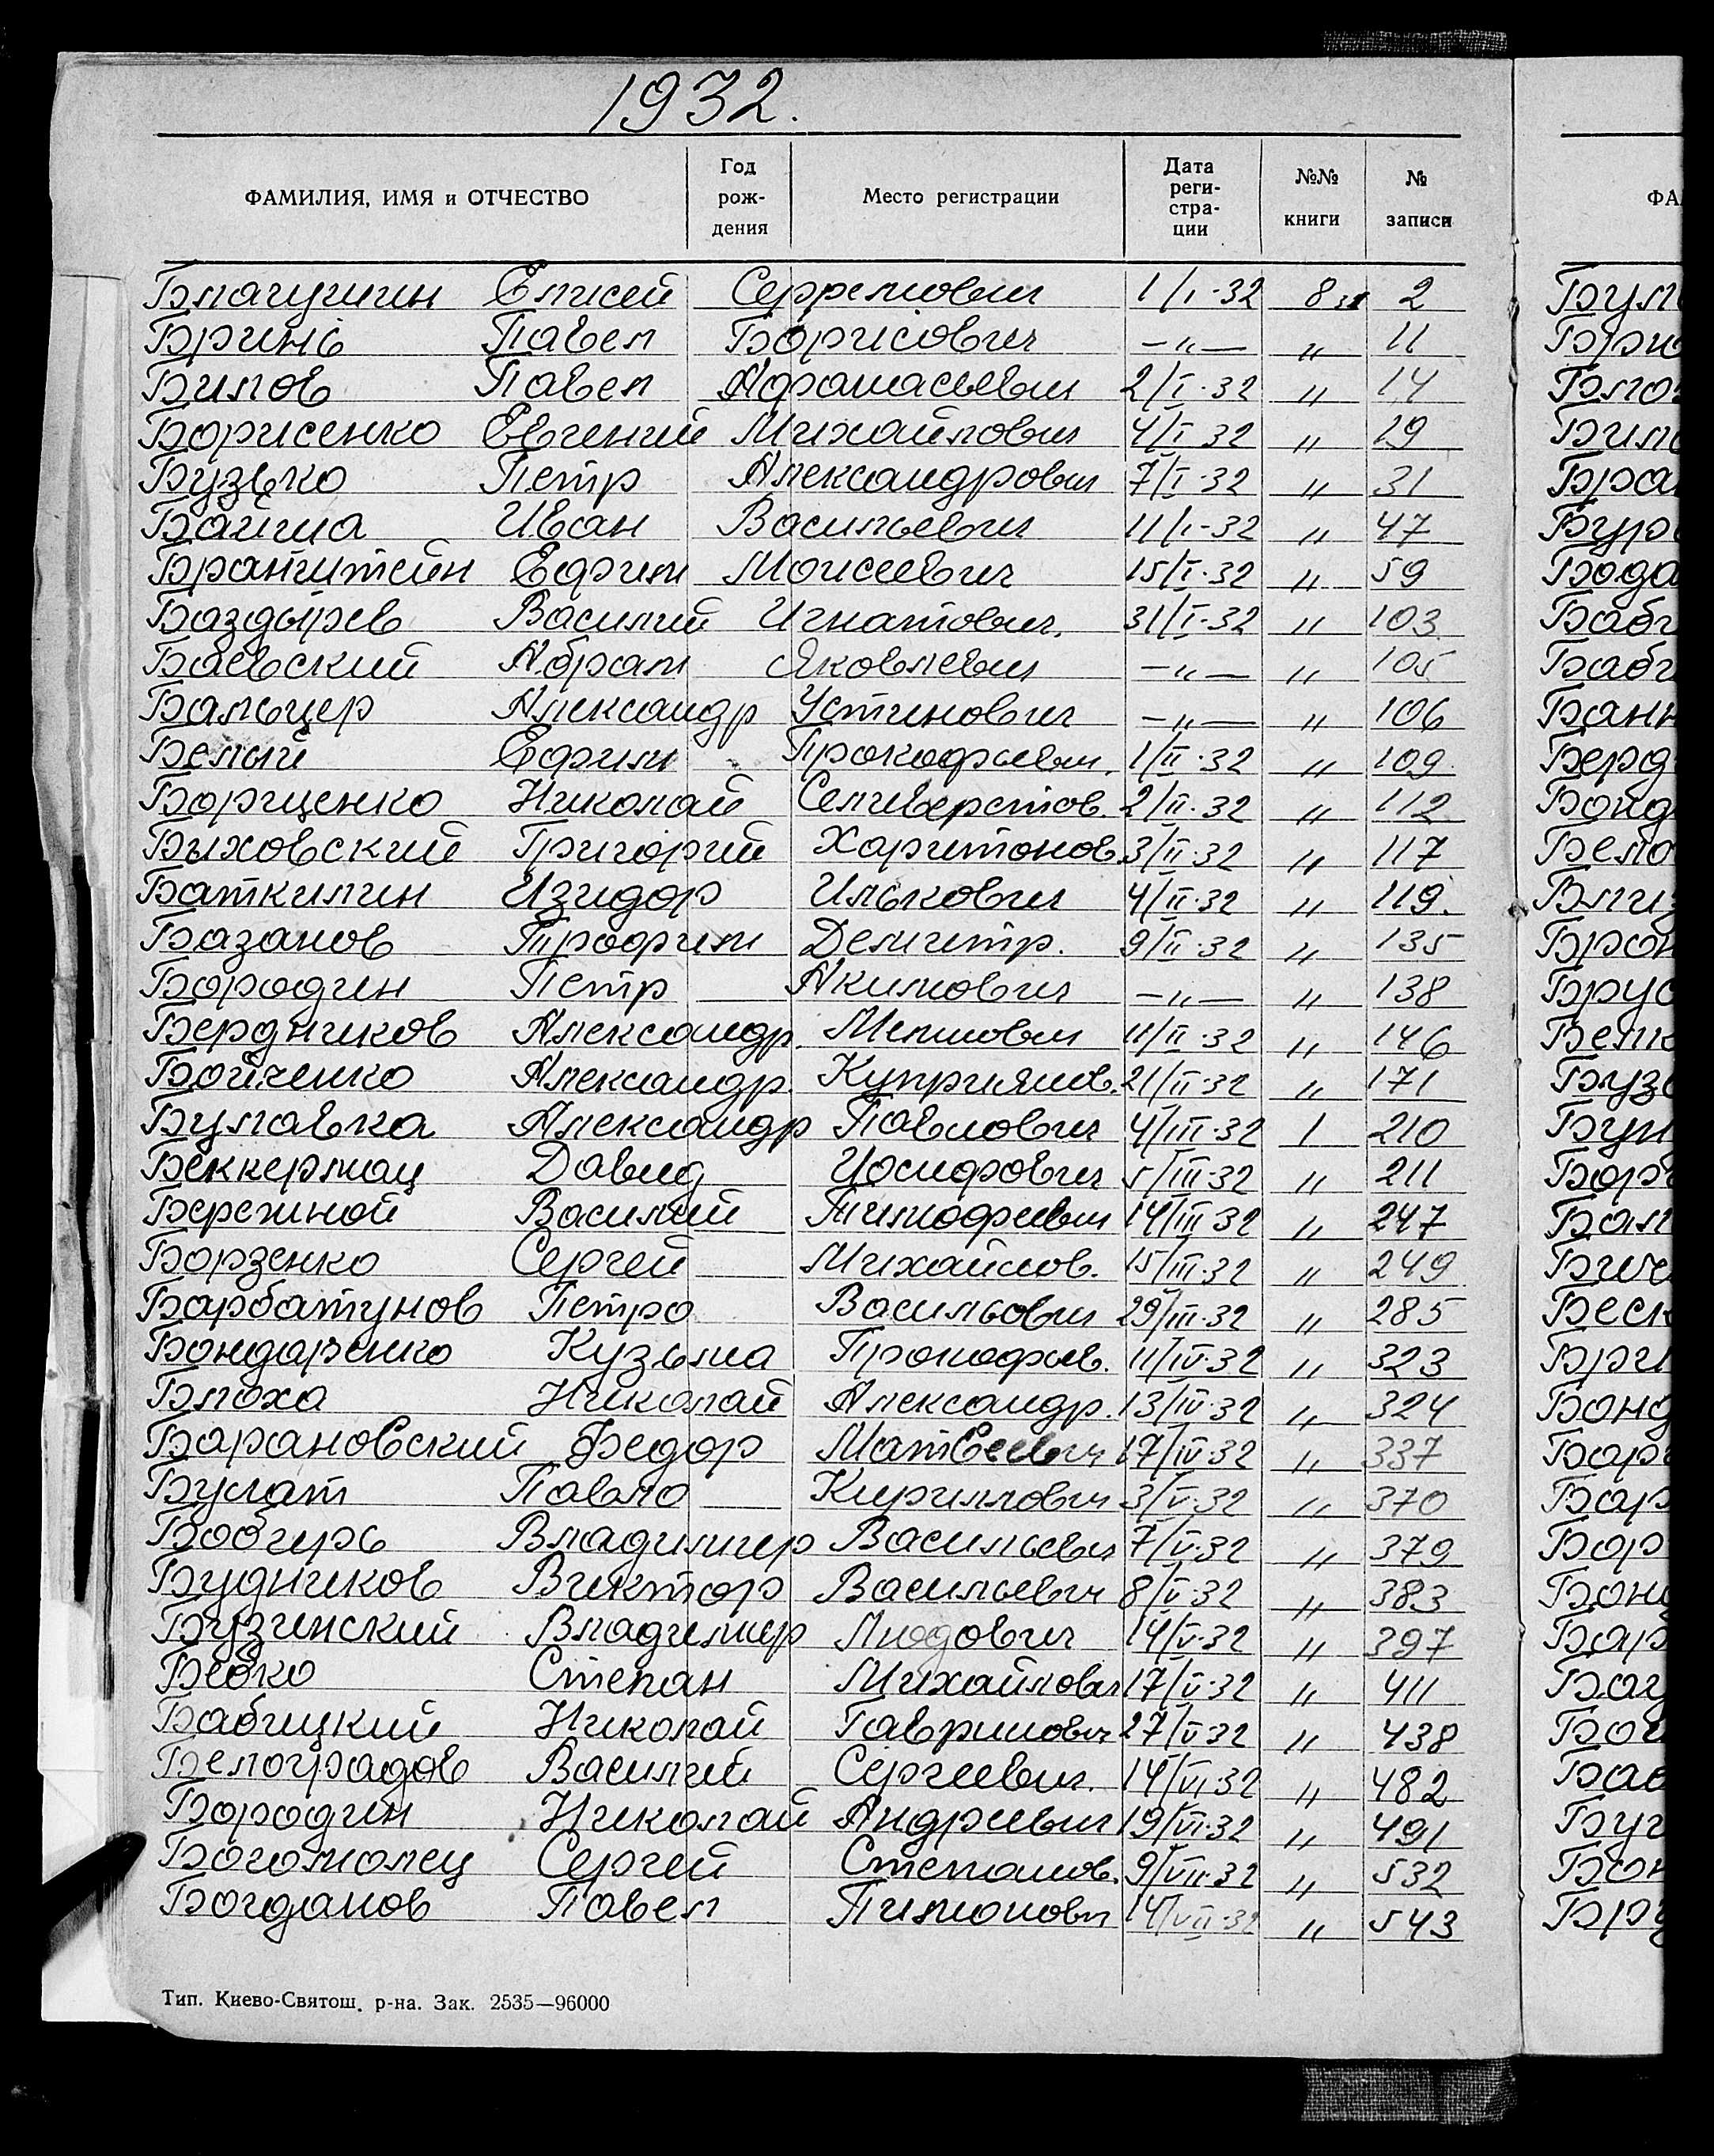 1932.
ФАМИЛИЯ, ИМЯ и ОТЧЕСТВО Год рождения Место регистрации Дата регистрации №№ книги № записи ФА
Благушин Елисей 1/I-32 8 2
Бринь Павел Борисович -„- „ 11
Билов Павел Афанасьевич 2/I-32 „ 14
Борисенко Евгений Михайлович 4/I 32 „ 29
Бузько Петр Александрович 7/I-32 „ 31
Иван Васильевич 11/I-32 „ 47
Ефрим Моисеевич 15/I-32 „ 59
Баздырев Василий Игнатович. 31/I-32 „ 103
Баевский Абрам Яковлевич -„- „ 105
Бальцер Александр Устинович -„- „ 106
Белый Ефим Прокофьевич. 1/II-32 „ 109.
Борщенко Николай Селиверстов. 2/II-32 „ 112
Быховский Григорий Харитонов 3/II-32 „ 117
Баткилин Изидор Илькович 4/II-32 „ 119.
Базанов Трофим Демитр. 9/II-32 „ 135
Бородин Петр Акимович -„- „ 138
Бердников Александр. 11/II-32 „ 146
Бойченко Александр. Куприянов. 21/II-32 „ 171
Булавка Александр Павлович 4/III-32 1 210
Беккерман Давид Иосифович 5/III-32 „ 211
Бережной Василий Тимофеевич 14/III 32 „ 247
Борзенко Сергей Михайлов. 15/III-32 „ 249
Барбатунов Петро Васильович 29/III-32 „ 285
Бондаренко Кузьма Прокофьев. 11/IV-32 „ 323
Блоха Николай Александр. 13/IV-32 „ 324
Барановский Федор Матвеевич 17/IV-32 „ 337
Булат Павло Кириллович 3/V-32 „ 370
Бобирь Владимир Васильевич 7/V-32 „ 379
Будников Виктор Васильевич 8/V-32 „ 383
Бузинский Владимир Людович 14/V-32 „ 397
Бебко Степан Михайлович 17/V-32 „ 411
Бабицкий Николай Гаврилович 27/V-32 „ 438
Белоградов Василий Сергеевич. 14/VI-32 „ 482
Бородин Николай Андреевич 19/VI-32 „ 491
Богомолец Сергей Степанов. 9/VII-32 „ 532
Богданов Павел Пимонович 14/VII-32 „ 543
Тип. Киево-Святош. р-на. Зак. 2535—96000